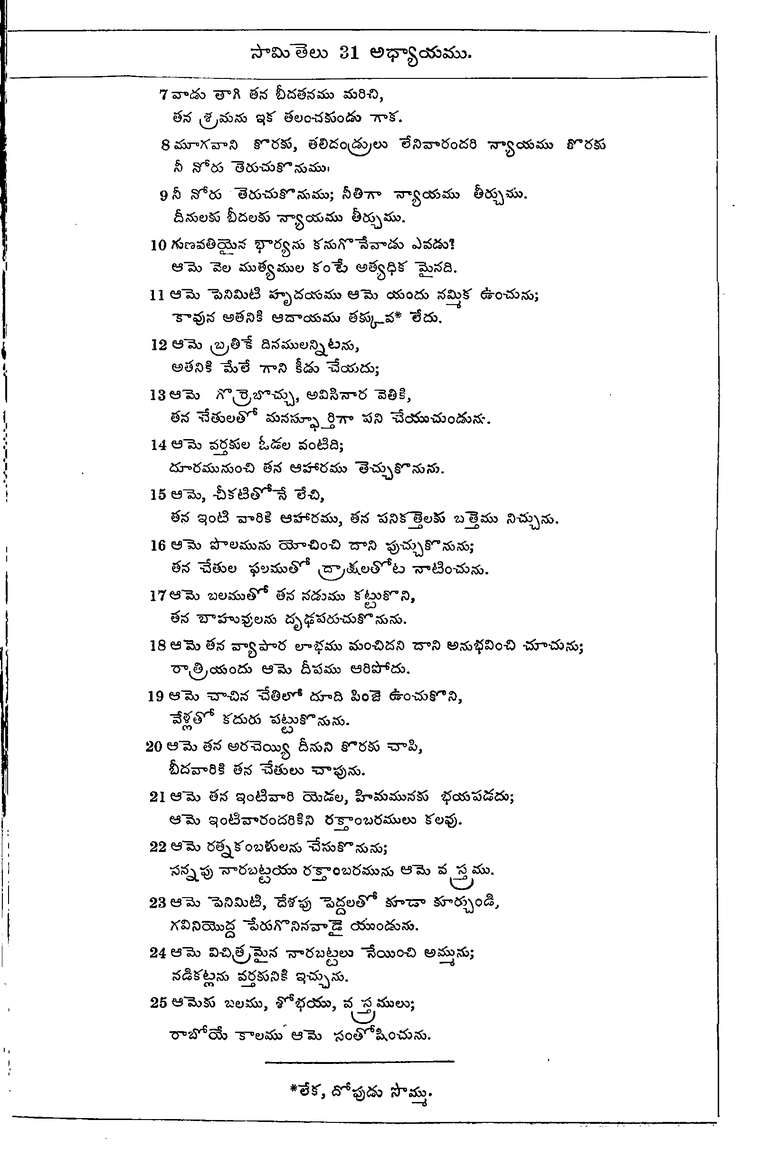 సామితెలు 31 అధ్యాయము.
7 వాడు తాగి తన బీదతనము మరిచి,
తన శ్రమను ఇక తలంచకుండు గాక.
8 మూగవాని కొరకు, తలిదండ్రులు లేనివారందరి న్యాయము కొరకు
నీ నోరు తెరుచుకొనుము.
9 నీ నోరు తెరుచుకొనుము; నీతిగా న్యాయము తీర్చుము.
దీనులకు బీదలకు న్యాయము తీర్చుము.
10 గుణవతియైన భార్యను కనుగొనేవాడు ఎవడు?
ఆమె వెల ముత్యముల కంటే అత్యధిక మైనది.
11 ఆమె పెనిమిటి హృదయము ఆమె యందు నమ్మిక ఉంచును;
కావున అతనికి ఆదాయము తక్కువ* లేదు.
12 ఆమె బ్రతికే దినములన్నిటను,
అతనికి మేలే గాని కీడు చేయదు;
13 ఆమె గొర్రెబొచ్చు, అవిసినార వెతికి,
తన చేతులతో మనస్ఫూర్తిగా పని చేయుచుండును.
14 ఆమె వర్తకుల ఓడల వంటిది;
దూరమునుంచి తన ఆహారము తెచ్చుకొనును.
15 ఆమె, చీకటితోనే లేచి,
తన ఇంటి వారికి ఆహారము, తన పనికత్తెలకు బత్తెము నిచ్చును.
16 ఆమె పొలమును యోచించి దాని పుచ్చుకొనును;
తన చేతుల ఫలముతో ద్రాక్షలతోట నాటించును.
17 ఆమె బలముతో తన నడుము కట్టుకొని,
తన బాహువులను దృఢపరుచుకొనును.
18 ఆమె తన వ్యాపార లాభము మంచిదని దాని అనుభవించి చూచును;
రాత్రియందు ఆమె దీపము ఆరిపోదు.
19 ఆమె చాచిన చేతిలో దూది పింజె ఉంచుకొని,
వేళ్లతో కదురు పట్టుకొనును.
20 ఆమె తన అరచెయ్యి దీనుని కొరకు చాపి,
బీదవారికి తన చేతులు చాపును.
21 ఆమె తన ఇంటివారి యెడల, హిమమునకు భయపడదు;
ఆమె ఇంటివారందరికిని రక్తాంబరములు కలవు.
22 ఆమె రత్నకంబళులను చేసుకొనును;
సన్నపు నారబట్టయు రక్తాంబరమును ఆమె వస్త్రము.
23 ఆమె పెనిమిటి, దేశపు పెద్దలతో కూడా కూర్చుండి,
గవినియొద్ద పేరుగొనినవాడై యుండును.
24 ఆమె విచిత్రమైన నారబట్టలు నేయించి అమ్మును;
నడికట్లను వర్తకునికి ఇచ్చును.
25 ఆమెకు బలము, శోభయు, వస్త్రములు;
రాబోయే కాలము ఆమె సంతోషించును.
*లేక, దోపుడు సొమ్ము.